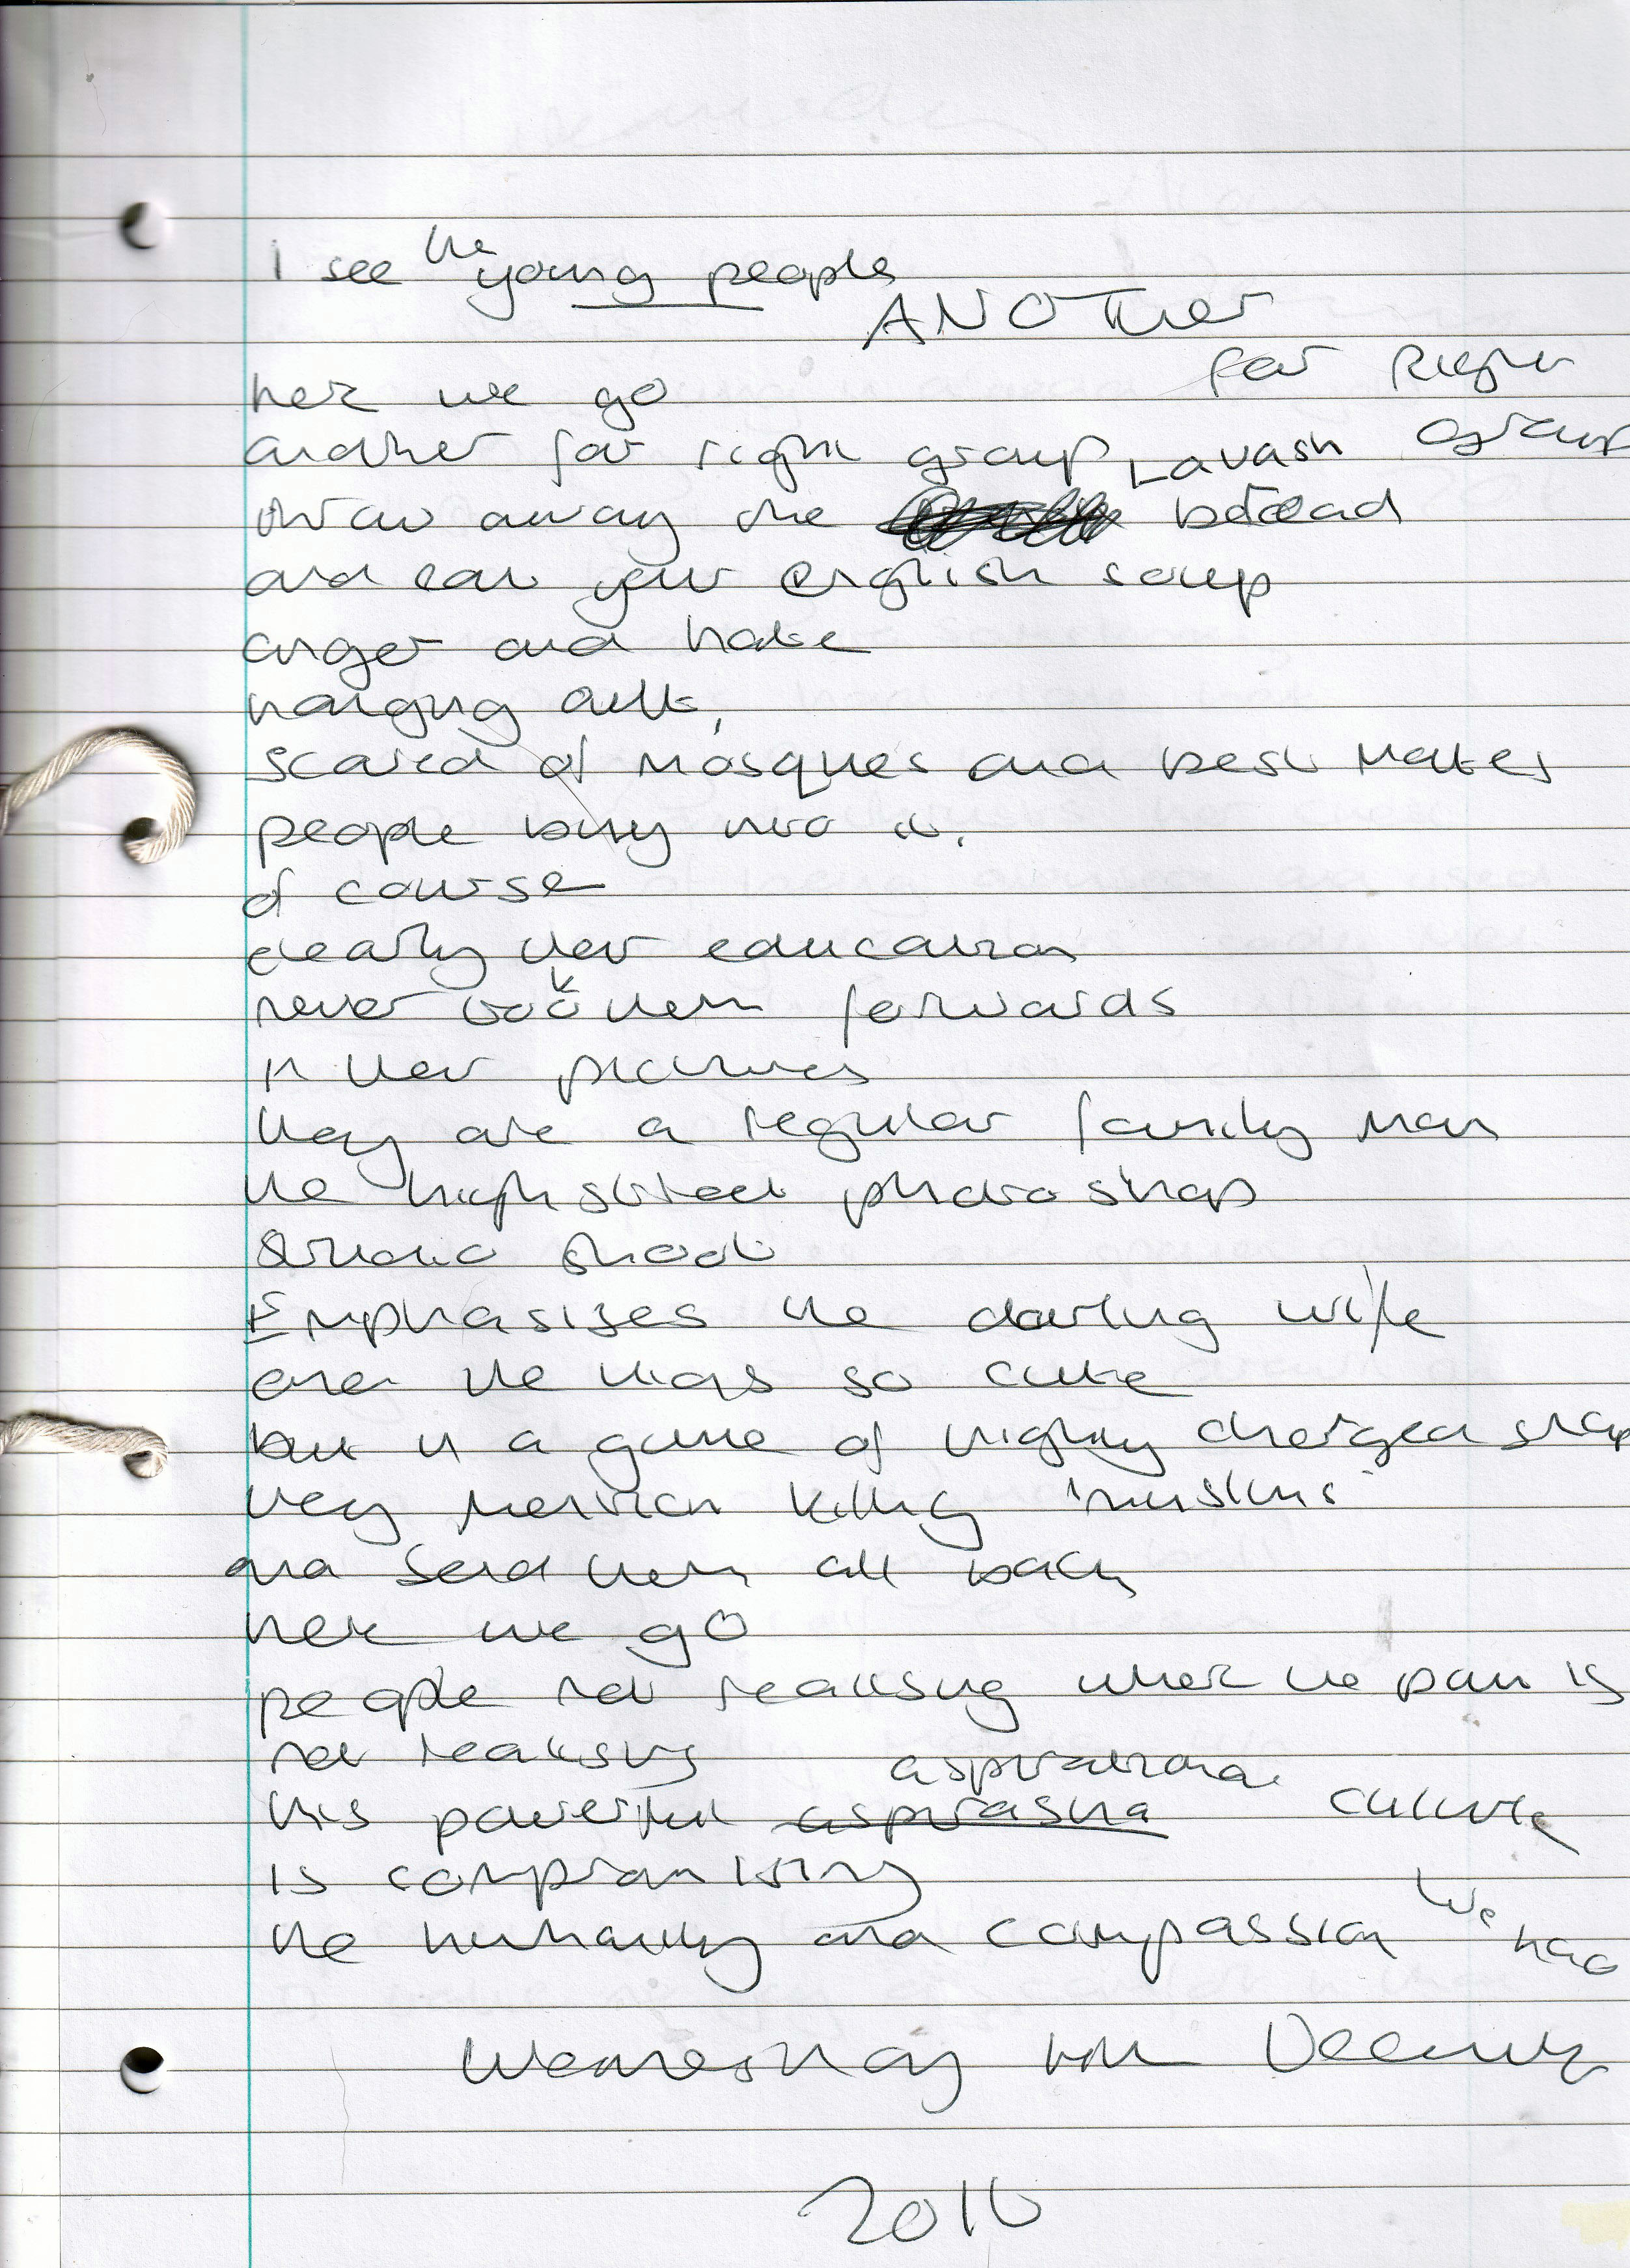 I see the young people
ANOTHer
far Right
group
here we go
another far right group
throw away the Lavash bread
and eat your english soup
anger and hate
hanging out,
scared of mosques and best mates
people buy into it.
of course
clearly their education
never took them forwards
in their pictures
they are a regular family man
the high street photo shop
studio shoot
Emphasizes the darling wife
and the kids so cute
but in a game of highly charged snap
they mention killing 'muslims'
and send them all back
here we go
people not realising where the pain is
not realising
this powerful aspirational culture
is compromising
the humanity and compassion we had
Wednesday
2016